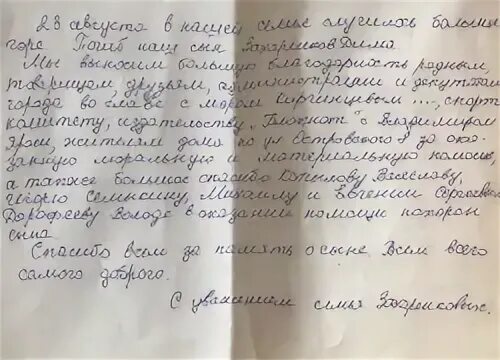 23 августа в нашей семье случилось большое
горе Погиб наш сын Захариков Дима
Мы выносим большую благодарность родным,
товарищам, друзьям, администрации и депутатам
города во главе с мэром ..., спорт
комитету, издательству "Блокнот" с Владимиром
жителям дома по ул Островского 8 за ока-
занную моральную и материальную помощь
а также большое спасибо Вячеславу,
Михаилу и Евгению
Дорофееву Володе в оказании помощи похорон
сына
Спасибо всем за память о сыне. Всем всего
самого доброго.
С уважением семья Захариковых.